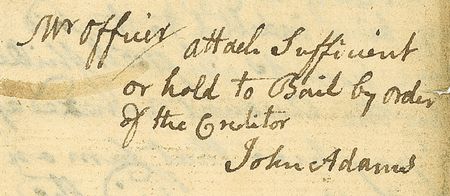 Mr Officer
attach Sufficient
or hold to Bail by order
of the Creditor
John Adams